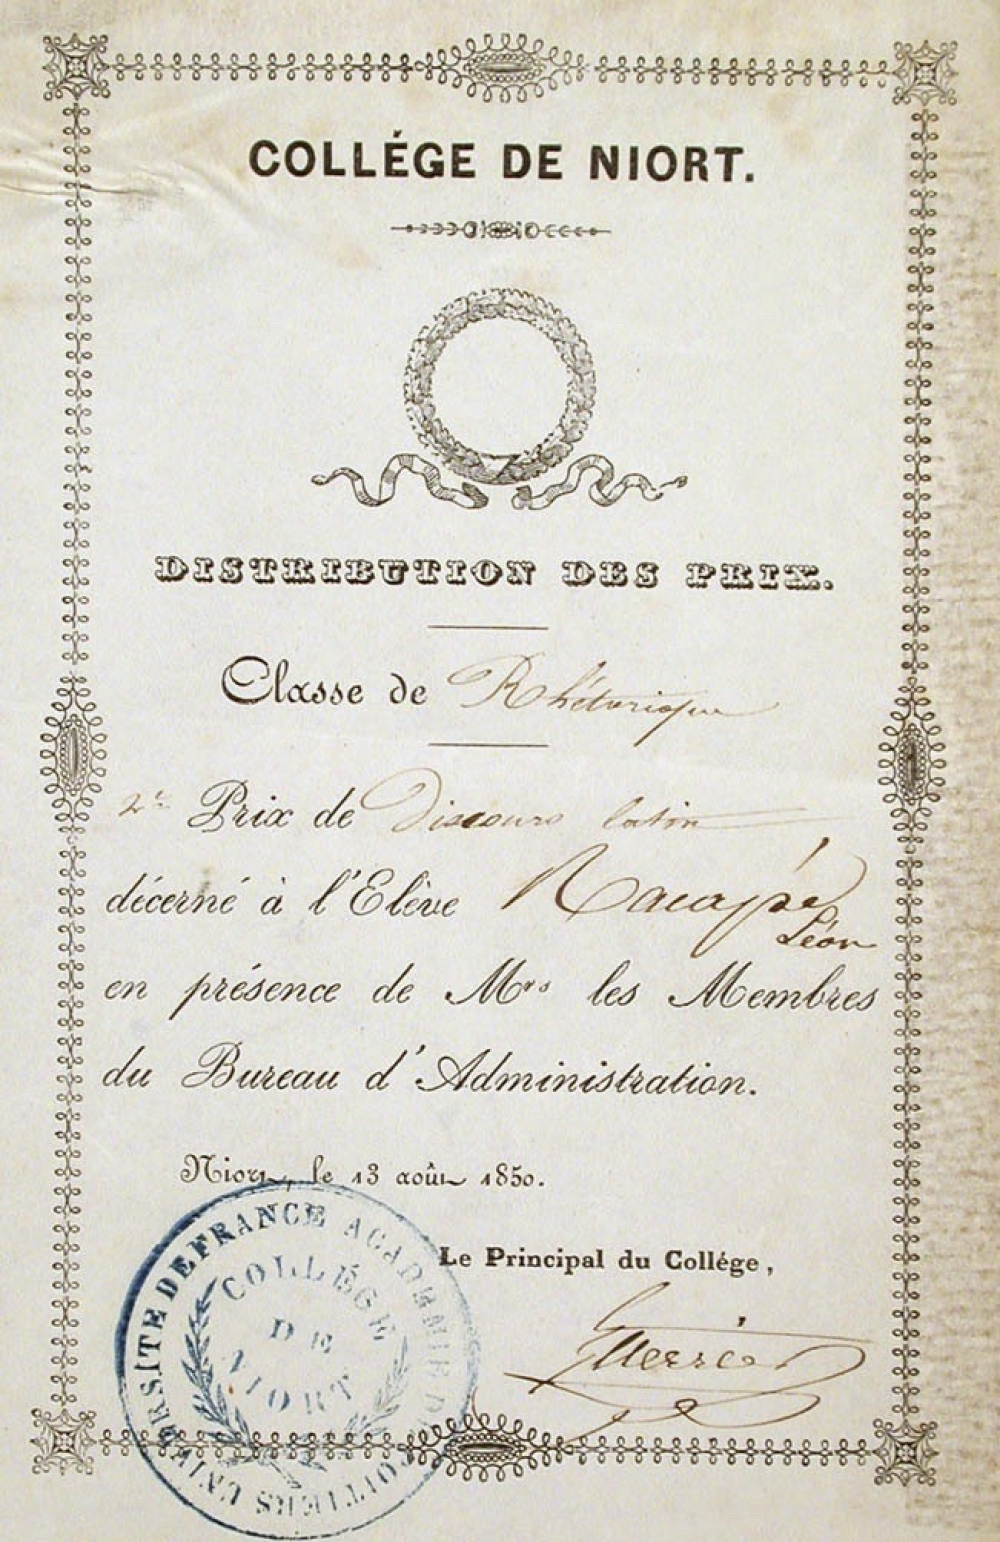 COLLÉGE DE NIORT.
DISTRIBUTION DES PRIX.
Classe de Rhétorique
2e Prix de Discours latin
décerné à l'Elève Racapé
Léon
en présence de Mrs les Membres
du Bureau d'Administration.
Niort, le 13 août 1850.
Le Principal du Collége,
UNIVERSITÉ DE FRANCE ACADEMIE DE POITIERS
COLLÉGE
DE
NIORT